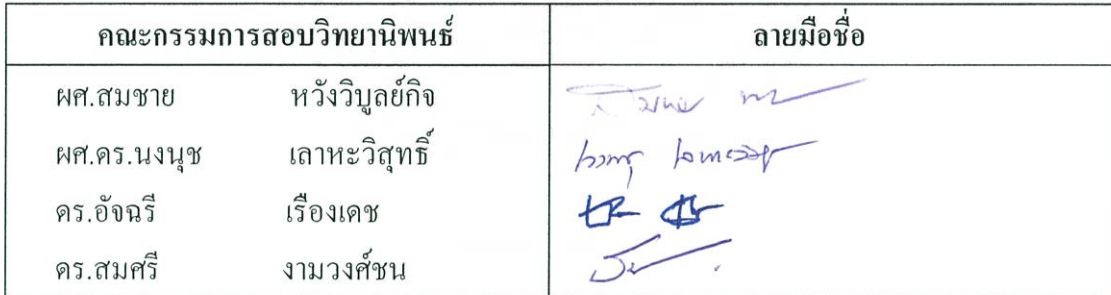 คณะกรรมการสอบวิทยานิพนธ์ ลายมือชื่อ
ผศ.สมชาย หวังวิบูลย์กิจ
ผศ.ดร.นงนุช เลาหะวิสุทธิ์
ดร.อัจฉรี เรืองเดช
ดร.สมศรี งามวงศ์ชน